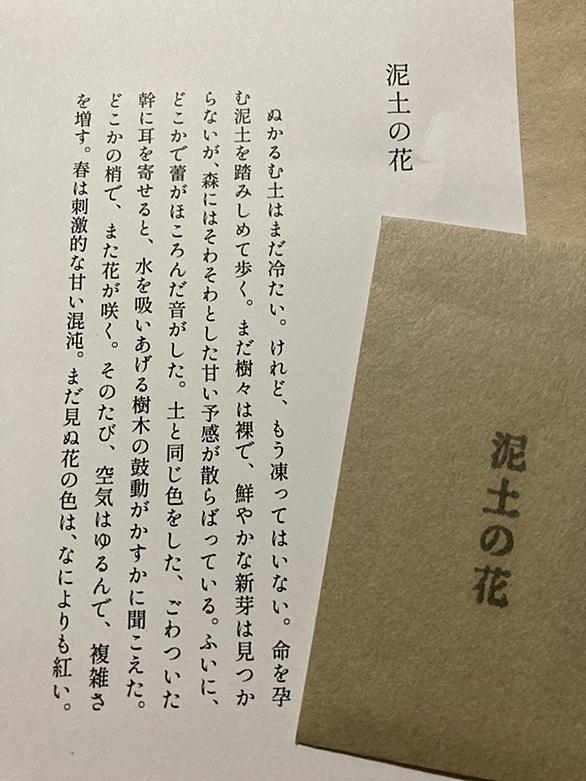 泥土の花
ぬかるむ土はまだ冷たい。けれど、もう凍ってはいない。命を孕
む泥土を踏みしめて歩く。まだ樹々は裸で、鮮やかな新芽は見つか
らないが、森にはそわそわとした甘い予感が散らばっている。ふいに、
どこかで蕾がほころんだ音がした。土と同じ色をした、ごわついた
幹に耳を寄せると、水を吸いあげる樹木の鼓動がかすかに聞こえた。
どこかの梢で、また花が咲く。そのたび、空気はゆるんで、複雑さ
を増す。春は刺激的な甘い混沌。まだ見ぬ花の色は、なによりも紅い。
泥土の花